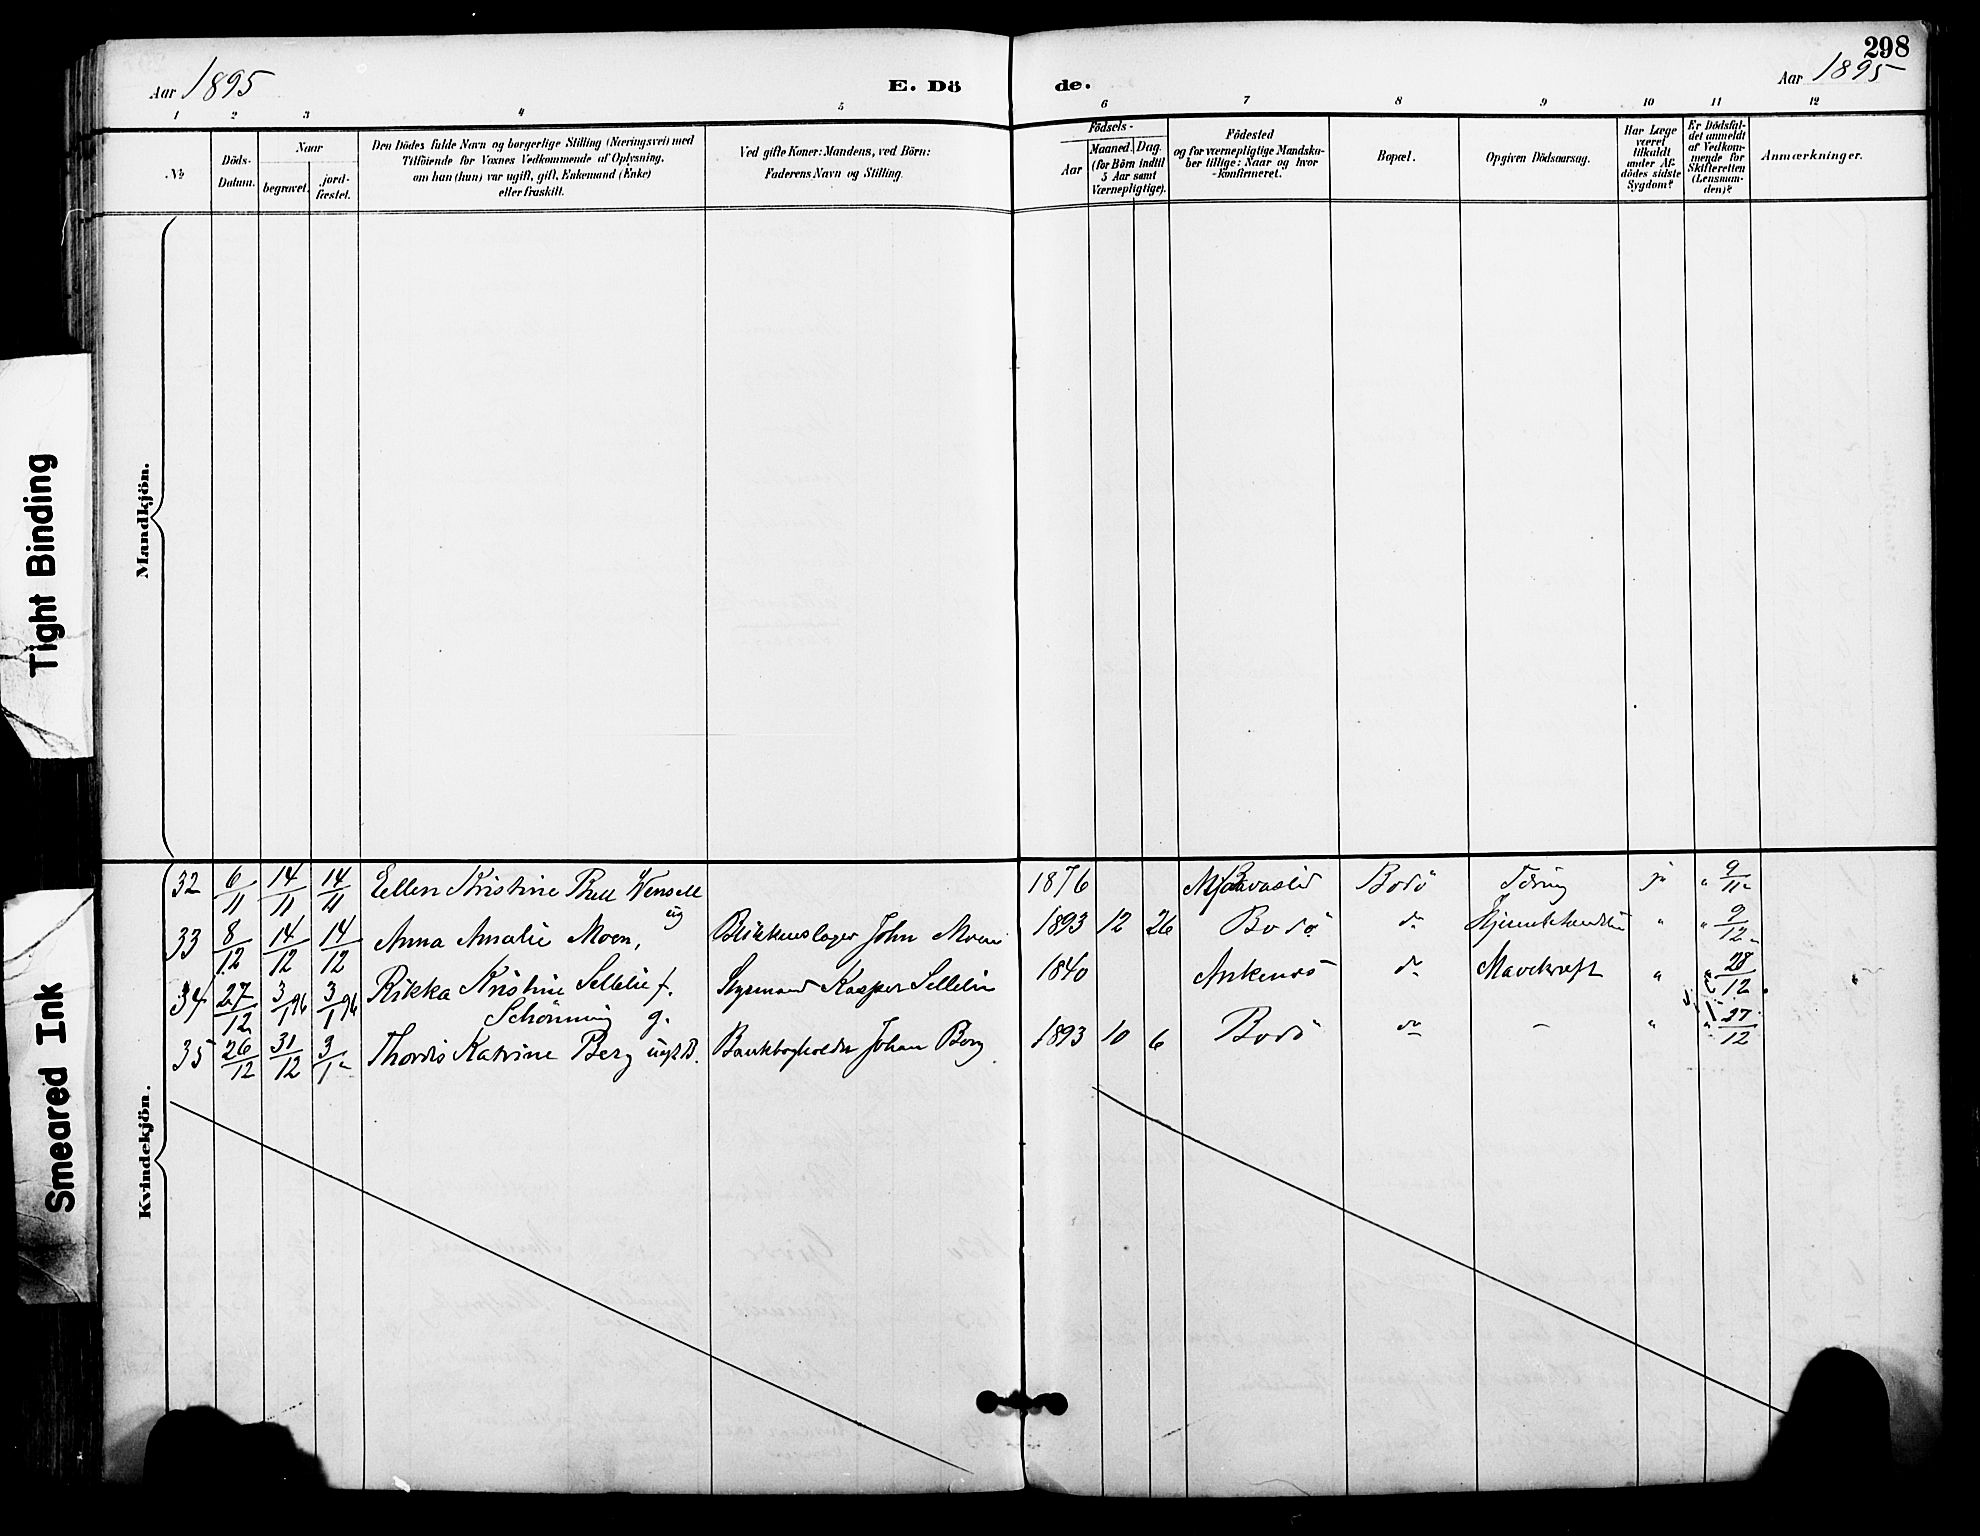 298
Aar 1895
E. Dö de.
Aar 1895
1 2 3 4 5 6 7 8 9 10 11 12
No
Döds-Datum.
Naar
begravet.
jord-fæstet.
Den Dödes fulde Navn og borgerlige Stilling (Næringsvei) med
Tilföiende for Voxnes Vedkommende af Oplysning,
om han (hun) var ugift, gift, Enkemand (Enke)
eller fraskilt.
Ved gifte Koner: Mandens, ved Börn:
Faderens Navn og Stilling.
Födsels-
Aar
Maaned. Dag.
(for Börn indtil
5 Aar samt
Værnepligtige).
Födested
og for værnepligtige Mandska-
ber tillige: Naar og hvor
konfirmeret.
Bopæl.
Opgiven Dödsaarsag.
Har Læge
været
tilkaldt
under Af-
dödes sidste
Sygdom?
Er Dödsfal-
det anmeldt
af Vedkom-
mende for
Skifteretten
(Lensman-
den)?
Anmærkninger.
Mandkjön.
Kvindekjön.
32 6/11 14/11 14/11 Ellen Kristine Wensell ug 1876 Bodö Tæring ja " 9/11
33 8/12 14/12 14/12 Anna Amalie Moen, Blikkenslager John Moen 1893 12 26 Bodö do " " 9/12
34 27/12 3/1 96 3/1 96 Rikka Kristine Sellelie f. Styrmand Kasper Sellelie 1840 Ankenes do Mavekræft " " 28/12
Schönning g.
35 26/12 31/12 3/1 Thordis Katrine Berg ugft B. Bankbogholder Johan Berg 1893 10 6 Bodö do - " " 27/12
Tight Binding
Smeared Ink